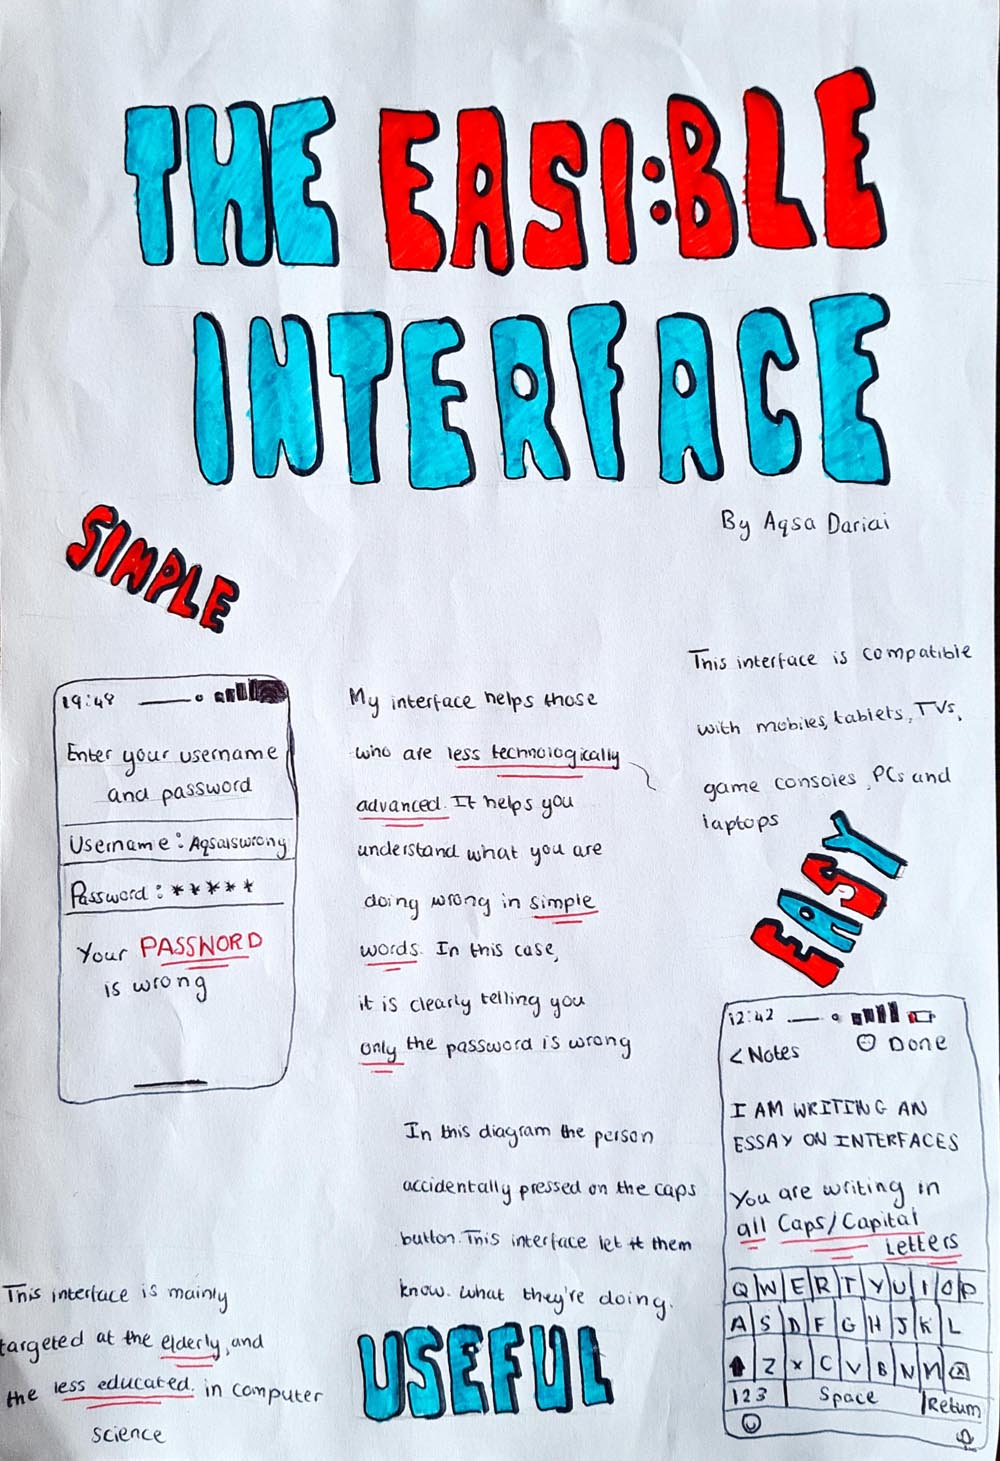 THE EASI:BLE
INTERFACE
By Aqsa Dariai
SIMPLE
19:48
Enter your username
and password
Username: Aqsaiswrong
Password: *****
Your PASSWORD
is wrong
My interface helps those
who are less technologically
advanced. It helps you
understand what you are
doing wrong in simple
words. In this case,
it is clearly telling you
only the password is wrong
This interface is compatible
with mobiles, tablets, TVs,
game consoles, PCs and
laptops
EASY
In this diagram the person
accidentally pressed on the caps
button. This interface let them
know. what they're doing.
12:42
< Notes
Done
I AM WRITING AN
ESSAY ON INTERFACES
You are writing in
all Caps/Capital
Letters
Q W E R T Y U I O P
A S D F G H J K L
Z X C V B N M
123 Space Return
This interface is mainly
targeted at the elderly, and
the less educated. in computer
science
USEFUL